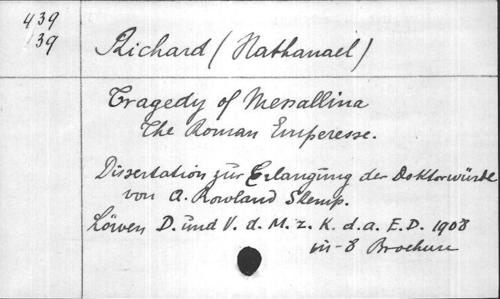 439
/39
Richard (Nathanael)
Tragedy of Messallina
The Roman Emperesse.
Dissertation zur Erlangung der Doktorwürde
von A. Rowland Skemp.
Löwen D. und V. d. M. z. K. d. a. E. D. 1908
in-8 Brochure